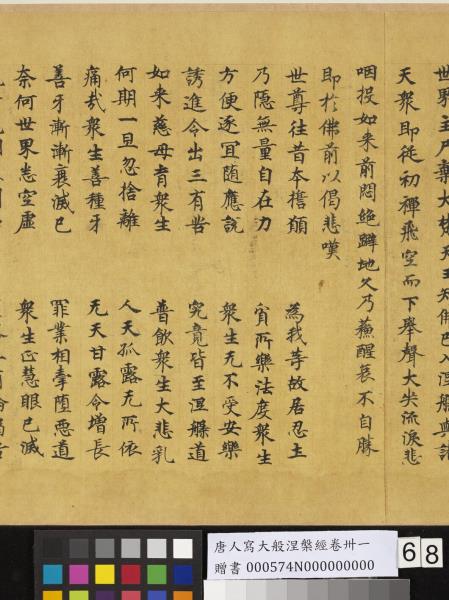 世界主尸棄大梵天王知佛已入涅槃與諸
天衆即従初禪飛空而下舉聲大哭流淚悲
咽投如来前悶絶躃地久乃蘇醒哀不自勝
即於佛前以偈悲嘆
世尊往昔本誓願 為我等故居忍土
乃隱無量自在力 貧所樂法度衆生
方便逐宜随應說 衆生无不受安樂
誘進令出三有苦 究竟皆至涅槃道
如来慈母育衆生 普飲衆生大悲乳
何期一旦忽捨離 人天孤露无所依
痛哉衆生善種牙 无天甘露令增長
善牙漸漸衰滅已 罪業相牽墮悪道
奈何世界悉空虛 衆生正慧眼已滅
唐人寫大般涅槃經卷卅一
贈書 000574N000000000
68